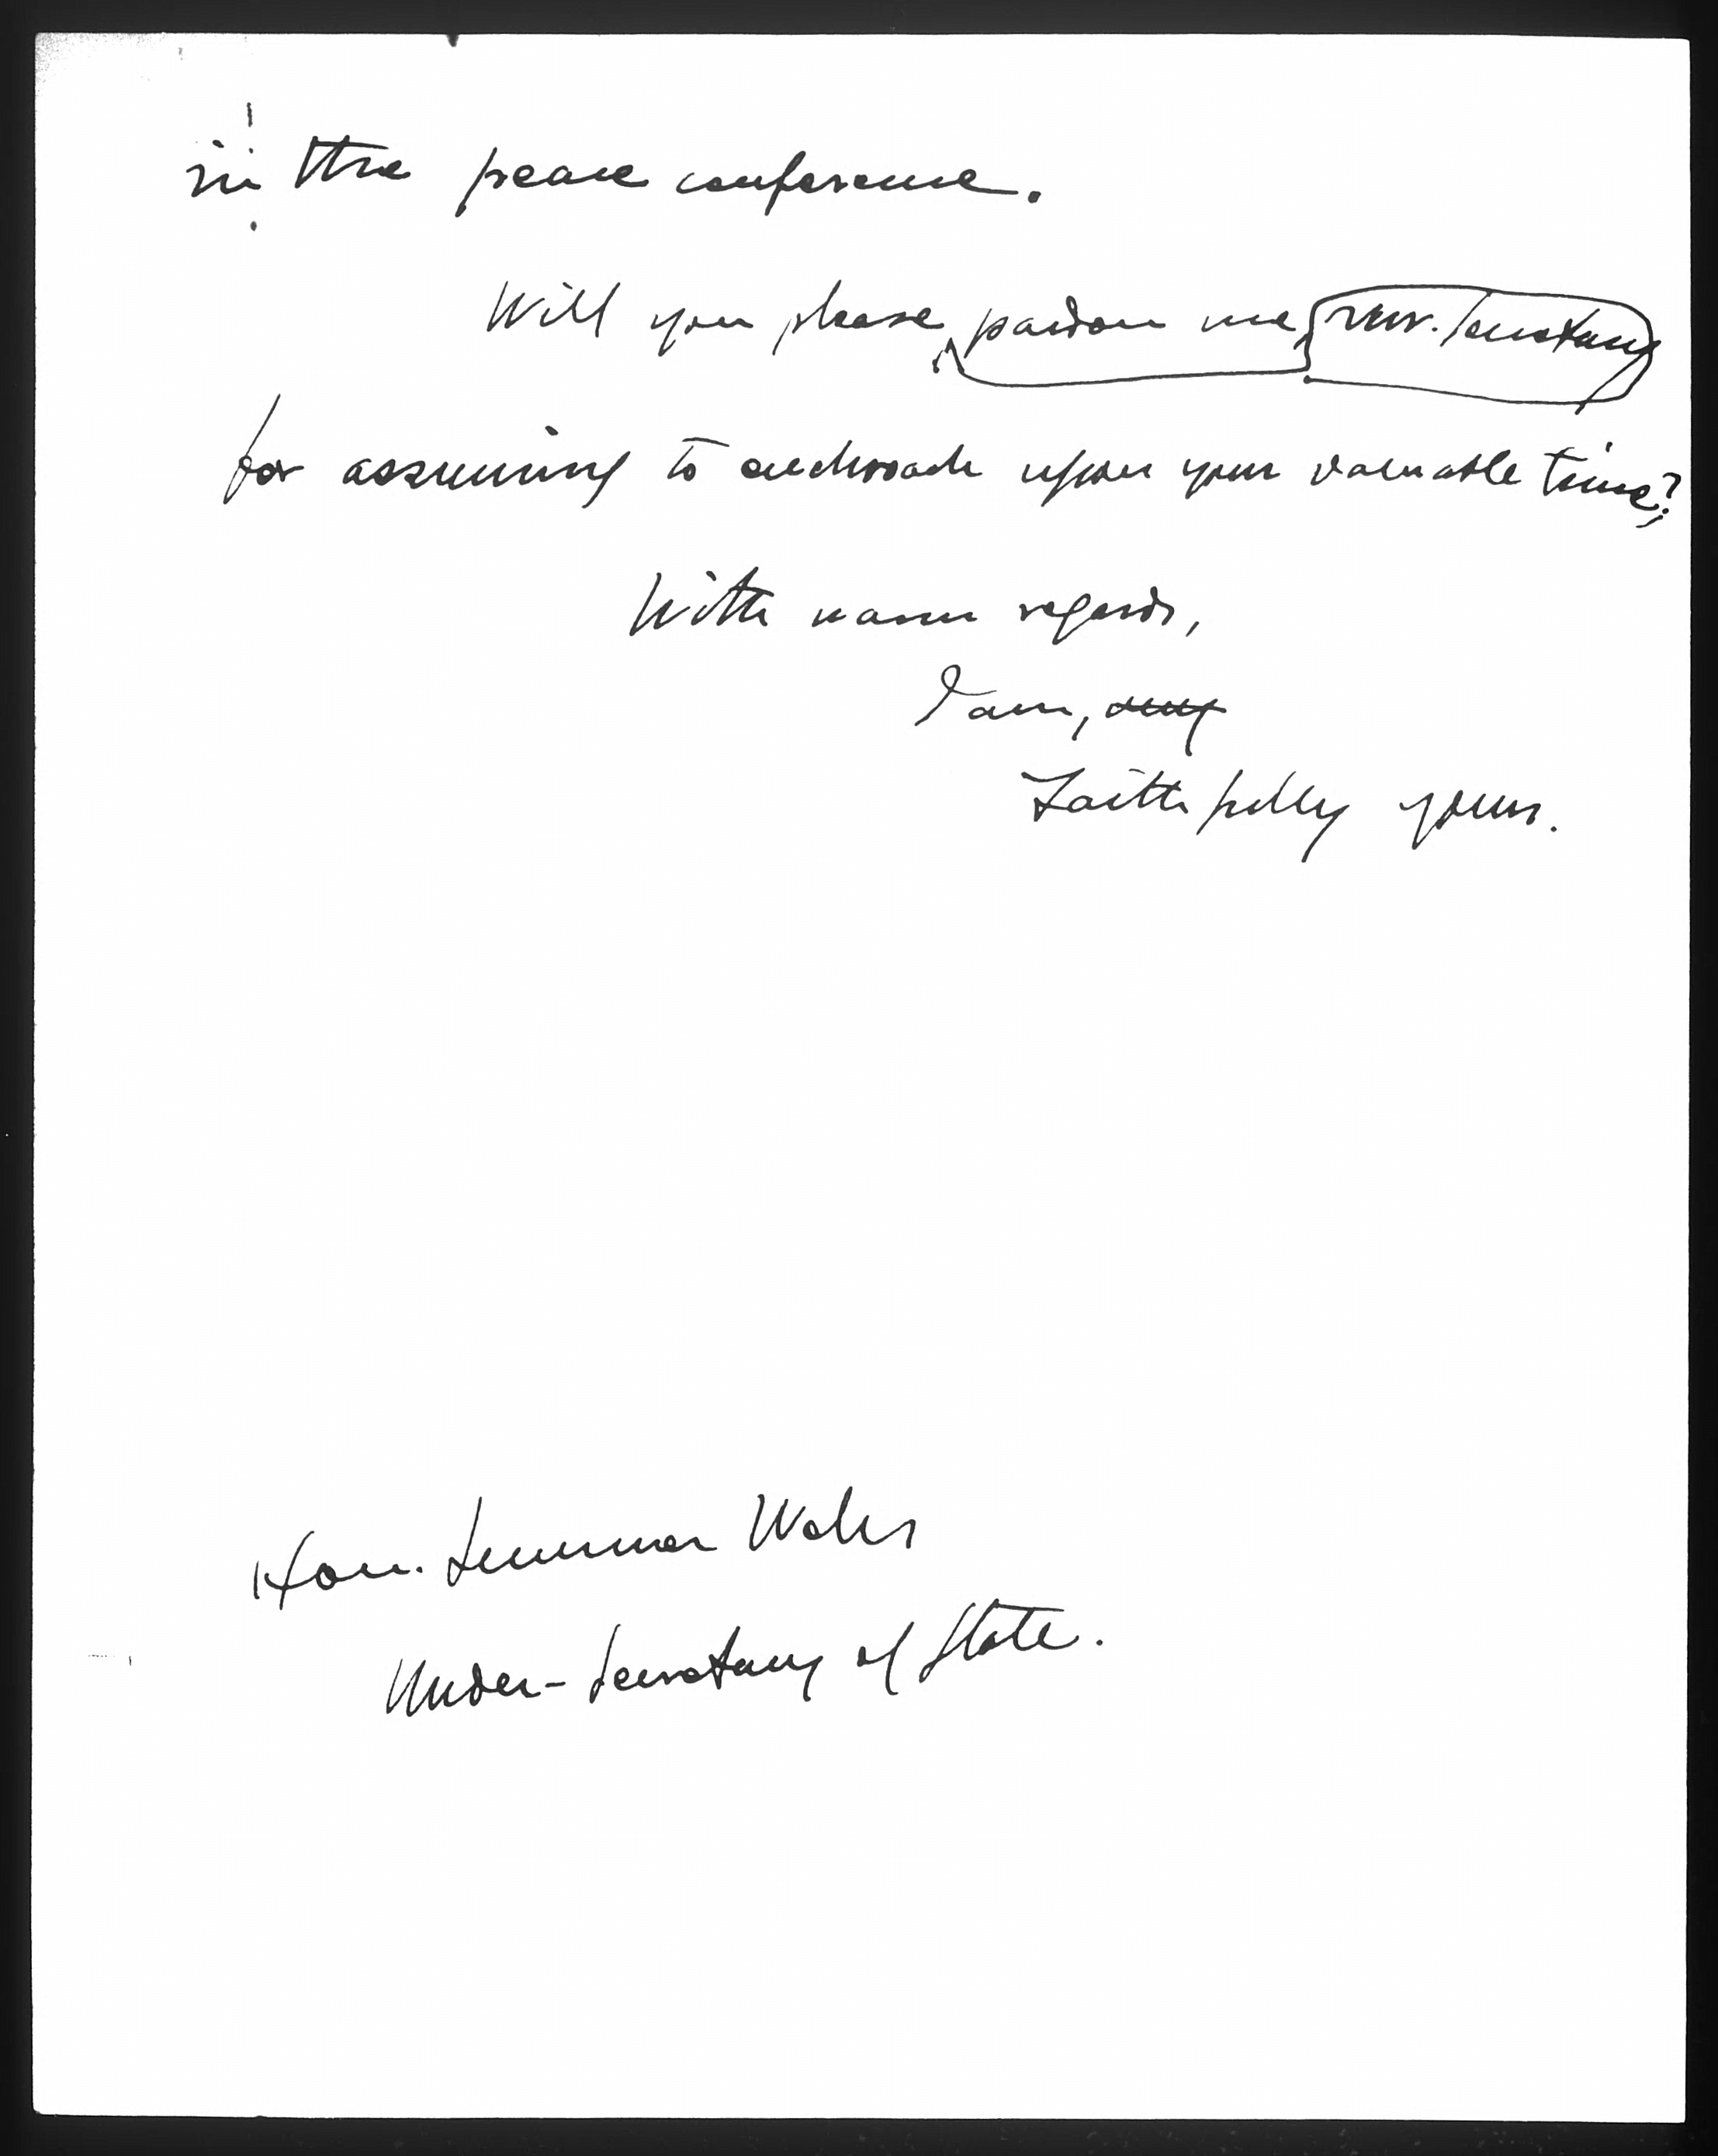 in the peace conference.
Will you please pardon me, Mr. Secretary
for assuming to encroach upon your valuable time?
With warm regards,
I am, very
Faithfully yours.
Hon. Sumner Welles
Under-Secretary of State.